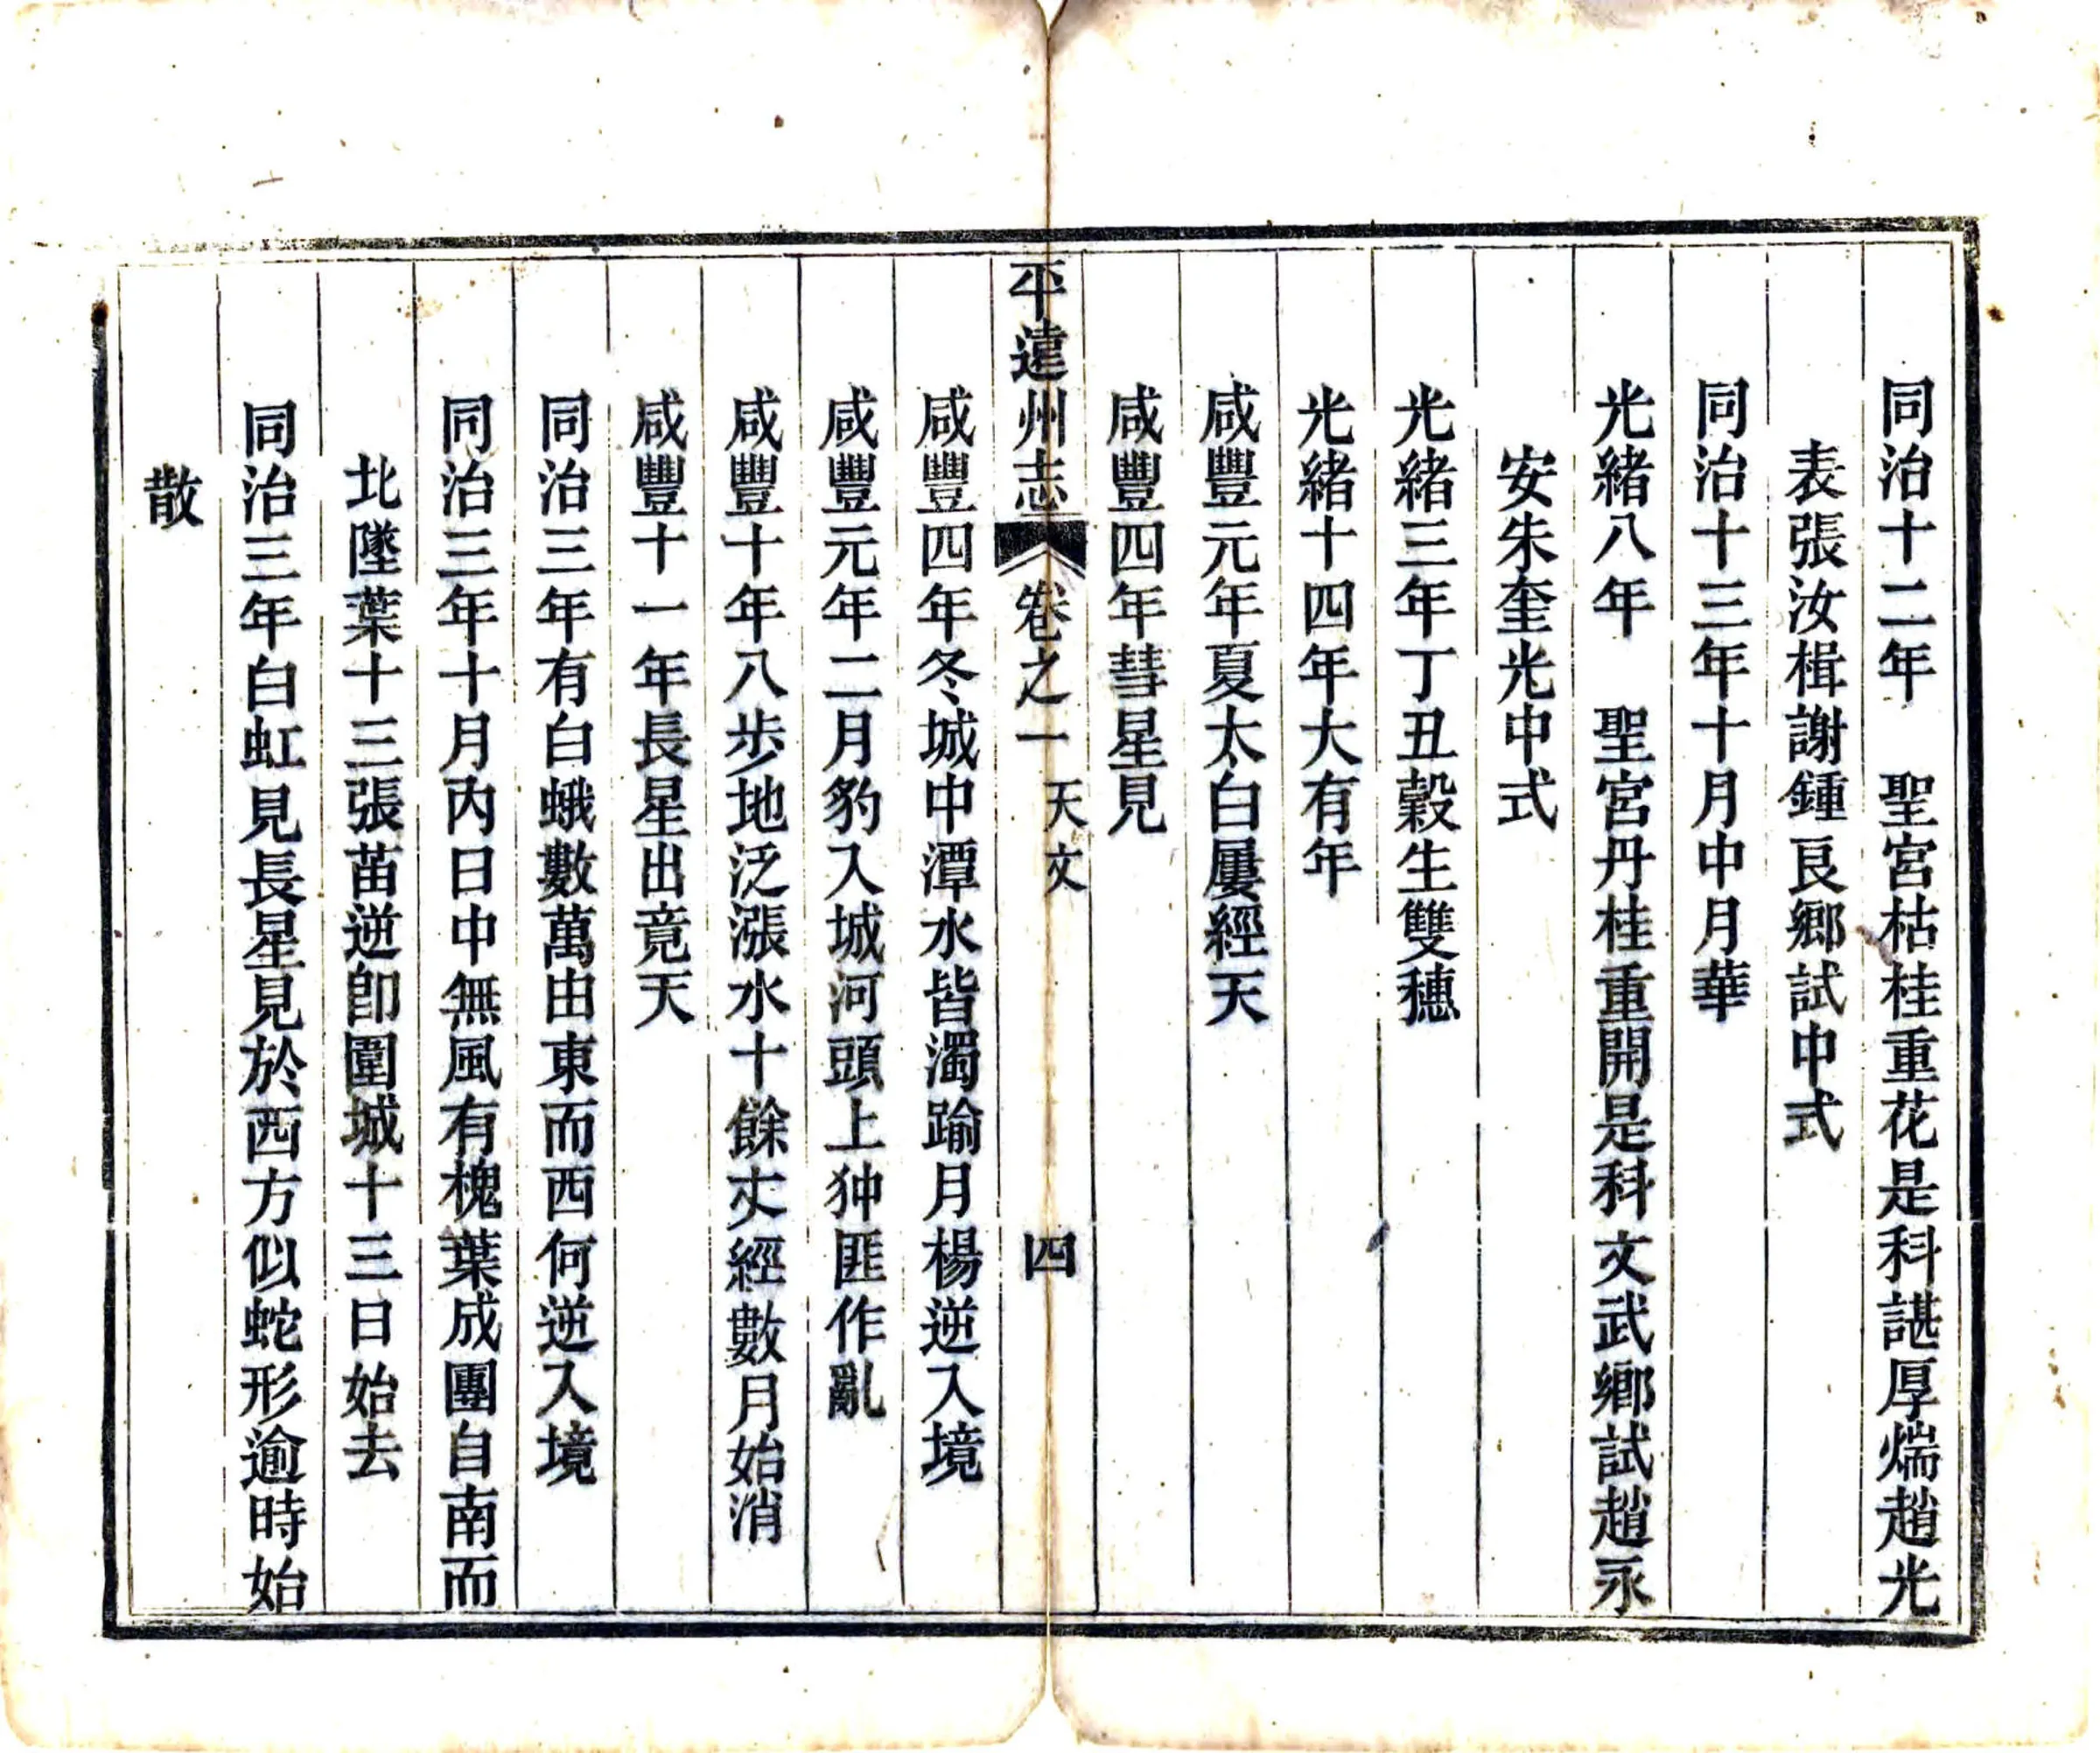 同治十二年　聖宮枯桂重花是科諶厚煓趙光
表張汝楫謝鍾良鄉試中式
同治十三年十月中月華
光緒八年　聖宮丹桂重開是科文武鄉試趙永
安朱奎光中式
光緒三年丁丑穀生雙穗
光緒十四年大有年
咸豐元年夏太白屢經天
咸豐四年彗星見
平遠州志　卷之一　天文　四
咸豐四年冬城中潭水皆濁踰月楊逆入境
咸豐元年二月豹入城河頭上狆匪作亂
咸豐十年八步地泛漲水十餘丈經數月始消
咸豐十一年長星出竟天
同治三年有白蛾數萬由東而西何逆入境
同治三年十月內日中無風有槐葉成團自南而
北墜葉十三張苗逆卽圍城十三日始去
同治三年白虹見長星見於西方似蛇形逾時始
散